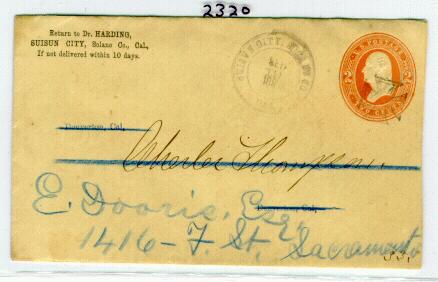 2320
Return to Dr. HARDING,
SUISUN CITY, Solano Co., Cal.,
If not delivered within 10 days.
SUISUN CITY,
U.S. POSTAGE
TWO CENTS
Cal.
Charles Thompson.
Cal.
E. Dooris, Esq.
1416-F. St. Sacramento